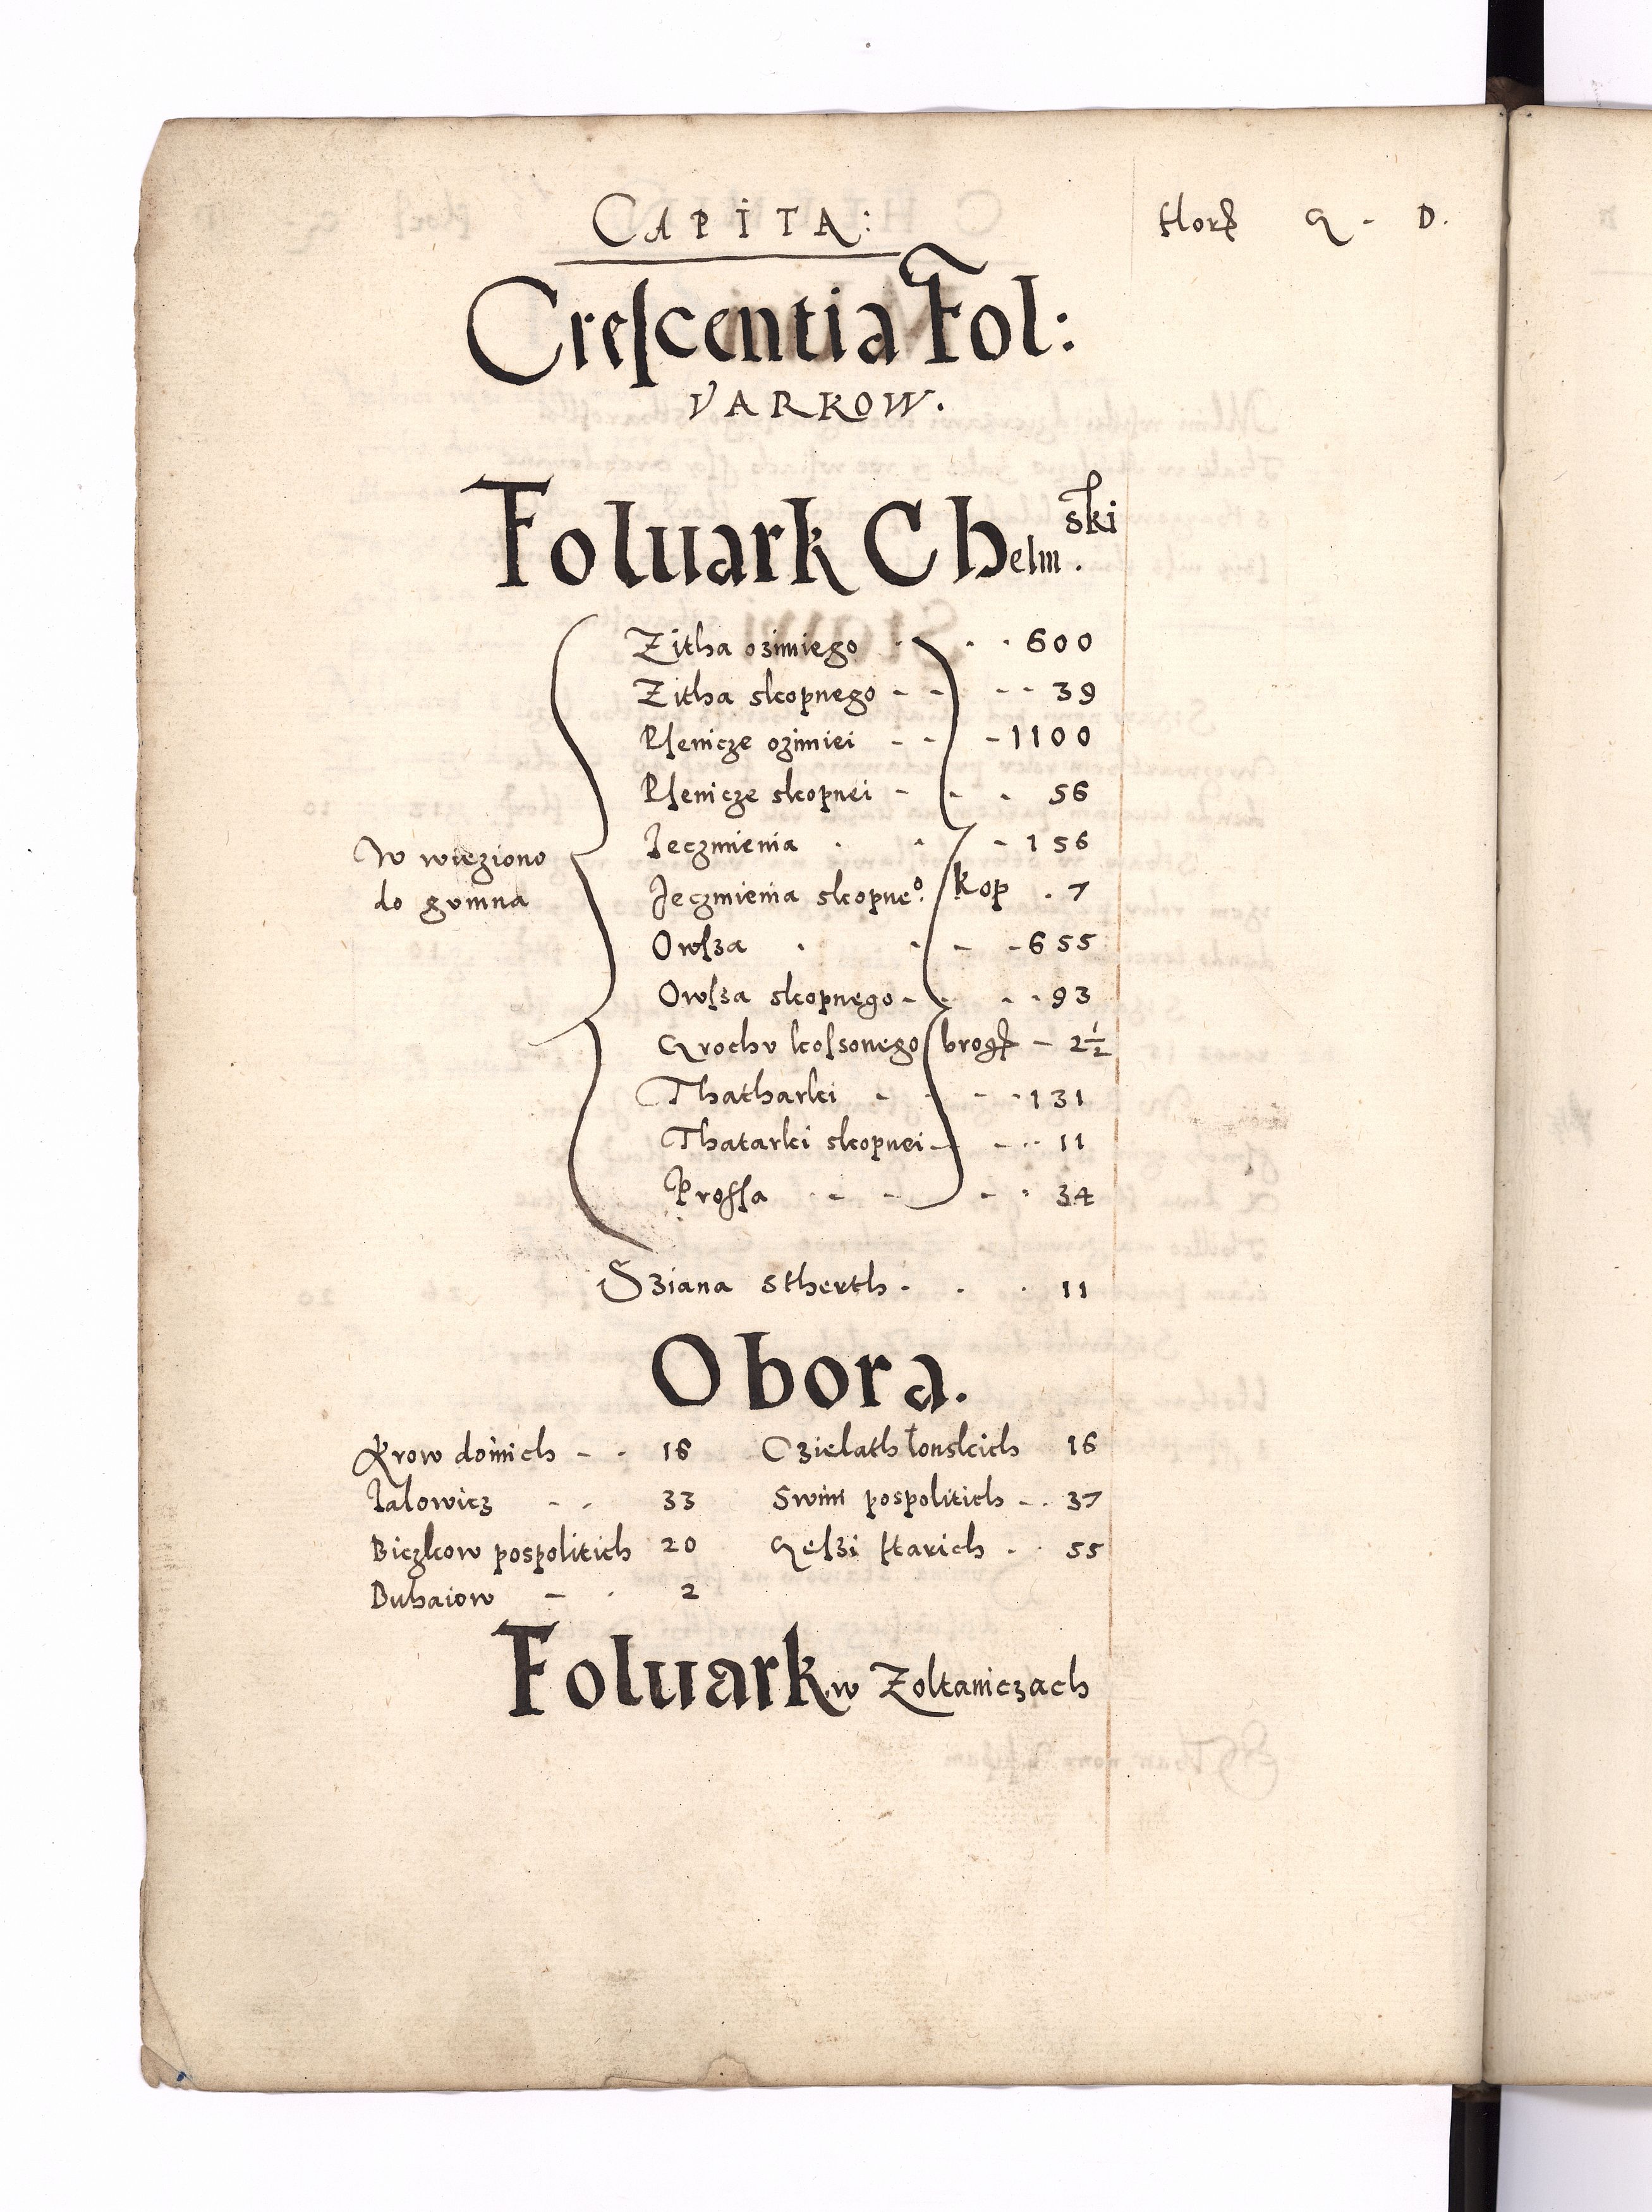 CAPITA: Flor G - D.
Creſcentia Fol:
VARKOW.
Foluark Chelm.ski
Zitha ozimiego - . . 600
Zitha skopnego - - - - 39
Pſenicze ozimiei - - - 1100
Pſenicze skopnei - - . 56
Jeczmienia . . - 156
W wieziono
do gumna
Jeczmienia skopneo. kop . 7
Owſza . . - - 655
Owſza skopnego - . - . 93
Grochv koſsonego brog - 2 1/2
Thatharki - - - . 131
Thatarki skopnei - - . . 11
Proſſa . - - - . 34
Sziana stherth . . . 11
Obora.
Krow doinich - . 18 Czielath łonskich 16
Jalowicz - - 33 Swini pospolitich - . 37
Biczkow pospolitich 20 Gęſzi ſtarich . . 55
Buhaiow - . 2
Foluark w Zoltaniczach